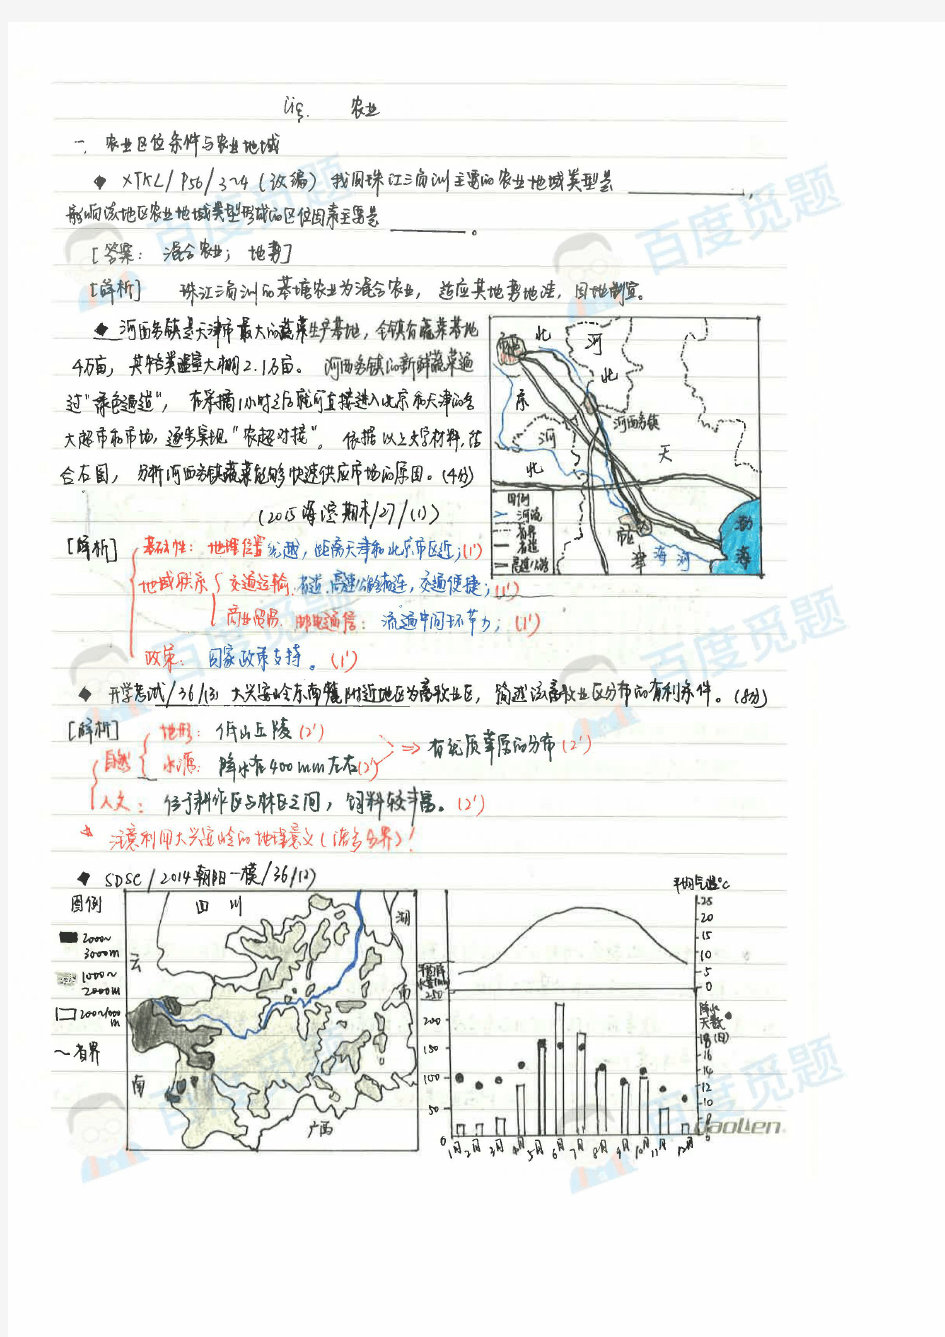 农业
一、农业区位条件与农业地域
◆ XTKL/P56/3~4(改编) 我国珠江三角洲主要的农业地域类型是________,
影响该地区农业地域类型形成的区位因素主要是________。
[答案: 混合农业; 地势]
[解析] 珠江三角洲的基塘农业为混合农业, 适应其地势地洼, 因地制宜。
◆ 河西务镇是天津市最大的蔬菜生产基地, 全镇有蔬菜基地
4万亩, 其中各类温室大棚2.1万亩。 河西务镇的新鲜蔬菜通
过"绿色通道", 在采摘1小时之后就可直接进入北京和天津的各
大超市和市场, 逐步实现"农超对接"。 依据以上文字材料, 结
合右图, 分析河西务镇蔬菜能够快速供应市场的原因。(4分)
(2015海淀期末/27/(1))
北
河
北
市区
京
河西务镇
河
北
天
图例
河流
省界
铁道
高速公路
市区
津
海河
渤
海
[解析]
基础性: 地理位置优越, 距离天津和北京市区近; (1')
地域联系
交通运输: 高速公路相连, 交通便捷; (1')
商业贸易、邮电通信: 流通中间环节少; (1')
政策: 国家政策支持。(1')
◆ 开学考试/36/(3) 大兴安岭东南麓附近地区为畜牧业区, 简述该畜牧业区分布的有利条件。(8分)
[解析]
自然
地形: 低山丘陵 (2')
水源: 降水在400mm左右 (2')
⇒ 有优质草原的分布 (2')
人文: 位于耕作区与林区之间, 饲料较丰富。(2')
注意利用大兴安岭的地理意义(诸多分界)!
◆ SDSC/2014朝阳一模/36/(2)
图例
2000~
3000m
1000~
2000m
200~1000
m
~省界
四川
云
南
湖
南
广西
平均气温℃
25
20
15
10
5
0
250
200
150
100
50
0
降水
天数
18(日)
16
14
12
10
8
6
1月 2月 3月 4月 5月 6月 7月 8月 9月 10月 11月 12月
daolien
百度觅题
百度觅题
百度觅题
百度觅题
百度觅题
百度觅题